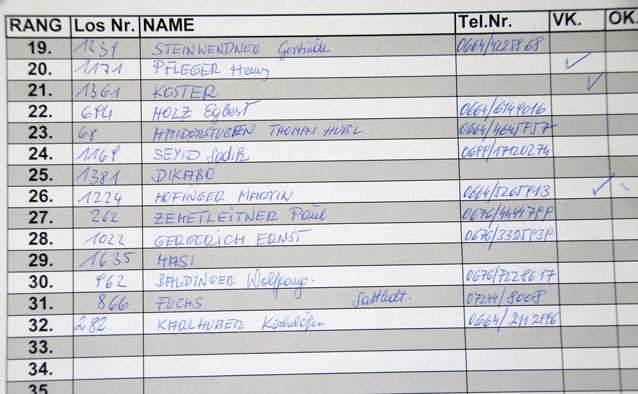 RANG Los Nr. NAME Tel.Nr. VK. OK.
19. 1239 STEINWENDNER Gertrude 0664/4225868
20. 1171 PFLEGER ✓
21. 1361 KOSTER ✓
22. 694 HOLZ Egbert 0664/6149016
23. 68 THOMAS HÜBL 0664/4645957
24. 1169 SEYID Sadik 0699/17120274
25. 1381 DIKABO
26. 1224 HOFINGER MARTIN 0664/5265913 ✓
27. 262 ZEHETLEITNER Paul 0676/4444799
28. 1022 ERNST 0676/3325939
29. 1635 HASI
30. 962 BALDINGER Wolfgang. 0676/7228617
31. 866 FUCHS Sattledt. 07244/8008
32. 282 KARLHUBER 0664/2112896
33.
34.
35